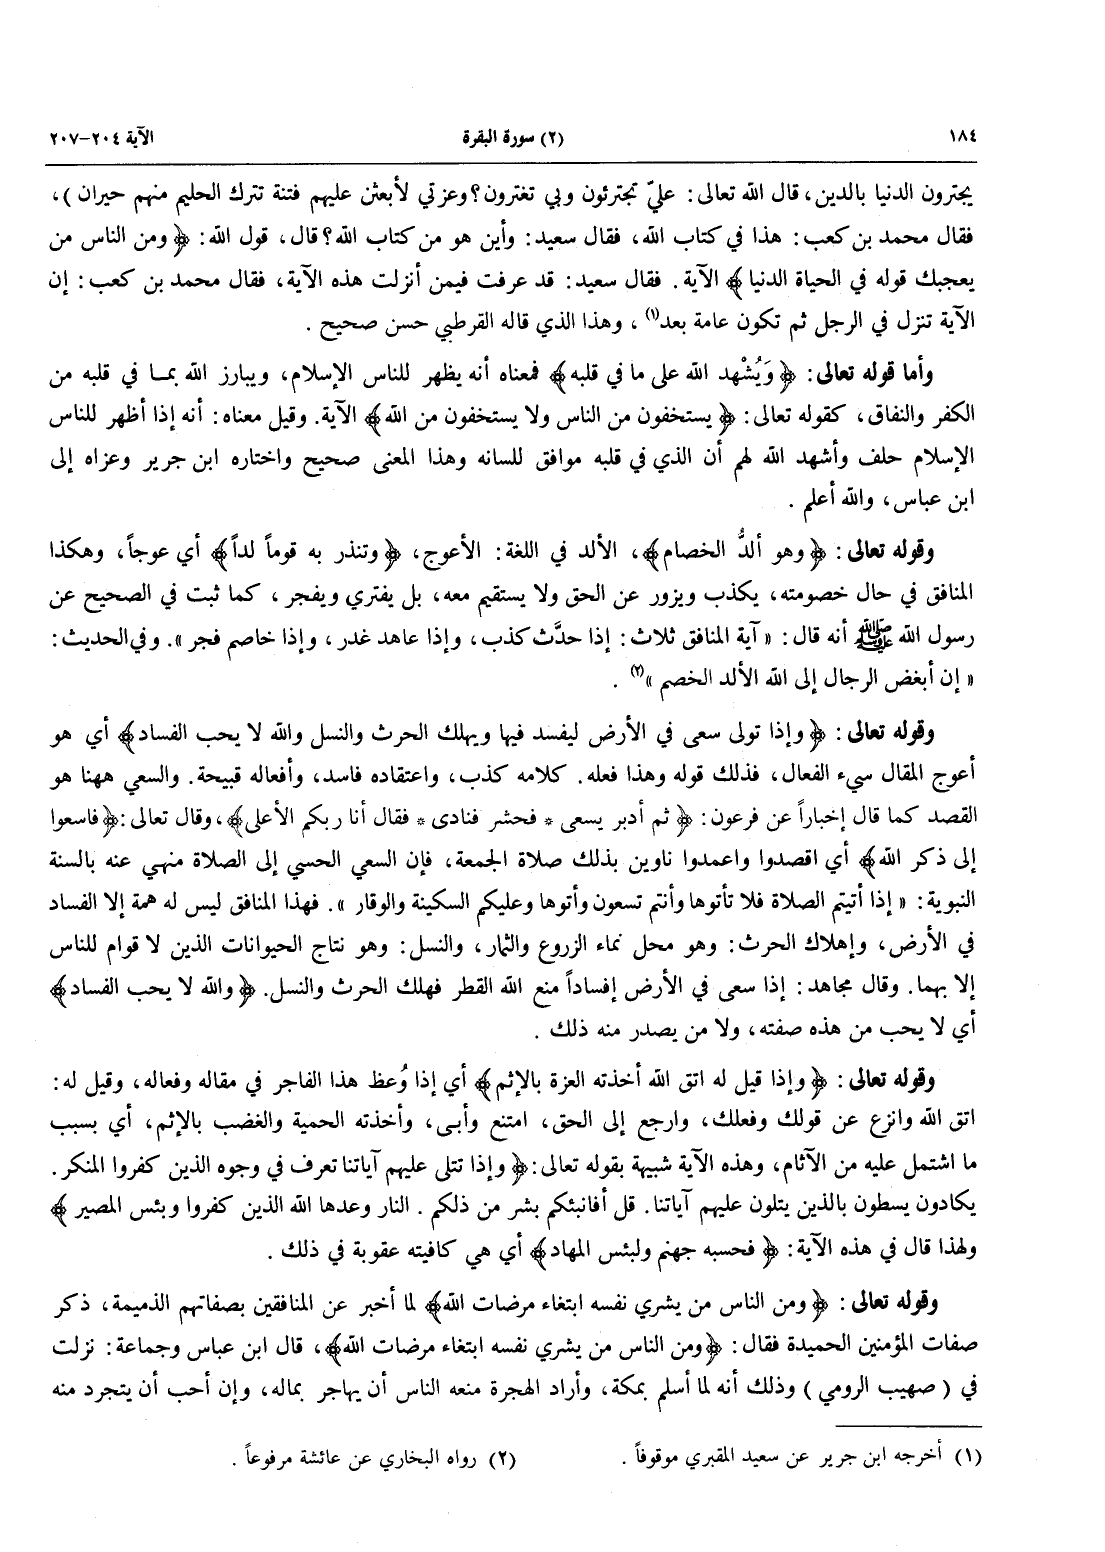 ١٨٤ (٢) سورة البقرة الآية ٢٠٤-٢٠٧
يجترون الدنيا بالدين، قال الله تعالى: عليّ تجترئون وبي تغترون؟ وعزتي لأبعثن عليهم فتنة تترك الحليم منهم حيران)،
فقال محمد بن كعب: هذا في كتاب الله، فقال سعيد: وأين هو من كتاب الله؟ قال، قول الله: ﴿ومن الناس من
يعجبك قوله في الحياة الدنيا﴾ الآية. فقال سعيد: قد عرفت فيمن أنزلت هذه الآية، فقال محمد بن كعب: إن
الآية تنزل في الرجل ثم تكون عامة بعد(١)، وهذا الذي قاله القرطبي حسن صحيح.
وأما قوله تعالى: ﴿وَيُشْهد الله على ما في قلبه﴾ فمعناه أنه يظهر للناس الإسلام، ويبارز الله بما في قلبه من
الكفر والنفاق، كقوله تعالى: ﴿يستخفون من الناس ولا يستخفون من الله﴾ الآية. وقيل معناه: أنه إذا أظهر للناس
الإسلام حلف وأشهد الله لهم أن الذي في قلبه موافق للسانه وهذا المعنى صحيح واختاره ابن جرير وعزاه إلى
ابن عباس، والله أعلم.
وقوله تعالى: ﴿وهو ألدُّ الخصام﴾، الألد في اللغة: الأعوج، ﴿وتنذر به قوماً لداً﴾ أي عوجاً، وهكذا
المنافق في حال خصومته، يكذب ويزور عن الحق ولا يستقيم معه، بل يفتري ويفجر، كما ثبت في الصحيح عن
رسول الله ﷺ أنه قال: «آية المنافق ثلاث: إذا حدَّث كذب، وإذا عاهد غدر، وإذا خاصم فجر». وفي الحديث:
«إن أبغض الرجال إلى الله الألد الخصم»(٢).
وقوله تعالى: ﴿وإذا تولى سعى في الأرض ليفسد فيها ويهلك الحرث والنسل والله لا يحب الفساد﴾ أي هو
أعوج المقال سيء الفعال، فذلك قوله وهذا فعله. كلامه كذب، واعتقاده فاسد، وأفعاله قبيحة. والسعي ههنا هو
القصد كما قال إخباراً عن فرعون: ﴿ثم أدبر يسعى * فحشر فنادى * فقال أنا ربكم الأعلى﴾، وقال تعالى: ﴿فاسعوا
إلى ذكر الله﴾ أي اقصدوا واعمدوا ناوين بذلك صلاة الجمعة، فإن السعي الحسي إلى الصلاة منهي عنه بالسنة
النبوية: «إذا أتيتم الصلاة فلا تأتوها وأنتم تسعون وأتوها وعليكم السكينة والوقار». فهذا المنافق ليس له همة إلا الفساد
في الأرض، وإهلاك الحرث: وهو محل نماء الزروع والثمار، والنسل: وهو نتاج الحيوانات الذين لا قوام للناس
إلا بهما. وقال مجاهد: إذا سعى في الأرض إفساداً منع الله القطر فهلك الحرث والنسل. ﴿والله لا يحب الفساد﴾
أي لا يحب من هذه صفته، ولا من يصدر منه ذلك.
وقوله تعالى: ﴿وإذا قيل له اتق الله أخذته العزة بالإثم﴾ أي إذا وُعظ هذا الفاجر في مقاله وفعاله، وقيل له:
اتق الله وانزع عن قولك وفعلك، وارجع إلى الحق، امتنع وأبى، وأخذته الحمية والغضب بالإثم، أي بسبب
ما اشتمل عليه من الآثام، وهذه الآية شبيهة بقوله تعالى: ﴿وإذا تتلى عليهم آياتنا تعرف في وجوه الذين كفروا المنكر.
يكادون يسطون بالذين يتلون عليهم آياتنا. قل أفانبئكم بشر من ذلكم. النار وعدها الله الذين كفروا وبئس المصير﴾
ولهذا قال في هذه الآية: ﴿فحسبه جهنم ولبئس المهاد﴾ أي هي كافيته عقوبة في ذلك.
وقوله تعالى: ﴿ومن الناس من يشري نفسه ابتغاء مرضات الله﴾ لما أخبر عن المنافقين بصفاتهم الذميمة، ذكر
صفات المؤمنين الحميدة فقال: ﴿ومن الناس من يشري نفسه ابتغاء مرضات الله﴾، قال ابن عباس وجماعة: نزلت
في (صهيب الرومي) وذلك أنه لما أسلم بمكة، وأراد الهجرة منعه الناس أن يهاجر بماله، وإن أحب أن يتجرد منه
(١) أخرجه ابن جرير عن سعيد المقبري موقوفاً. (٢) رواه البخاري عن عائشة مرفوعاً.